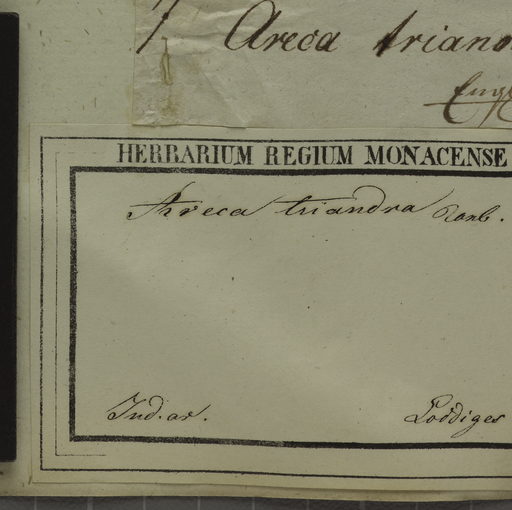 Areca trian
HERBARIUM REGIUM MONACENSE
Areca triandra Roxb.
Ind. or.
Loddiges